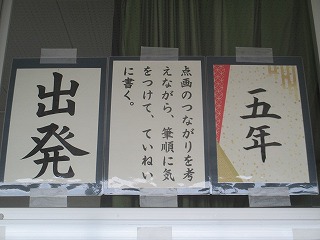 五年
点画のつながりを考
えながら、筆順に気
をつけて、ていねい
に書く。
出発